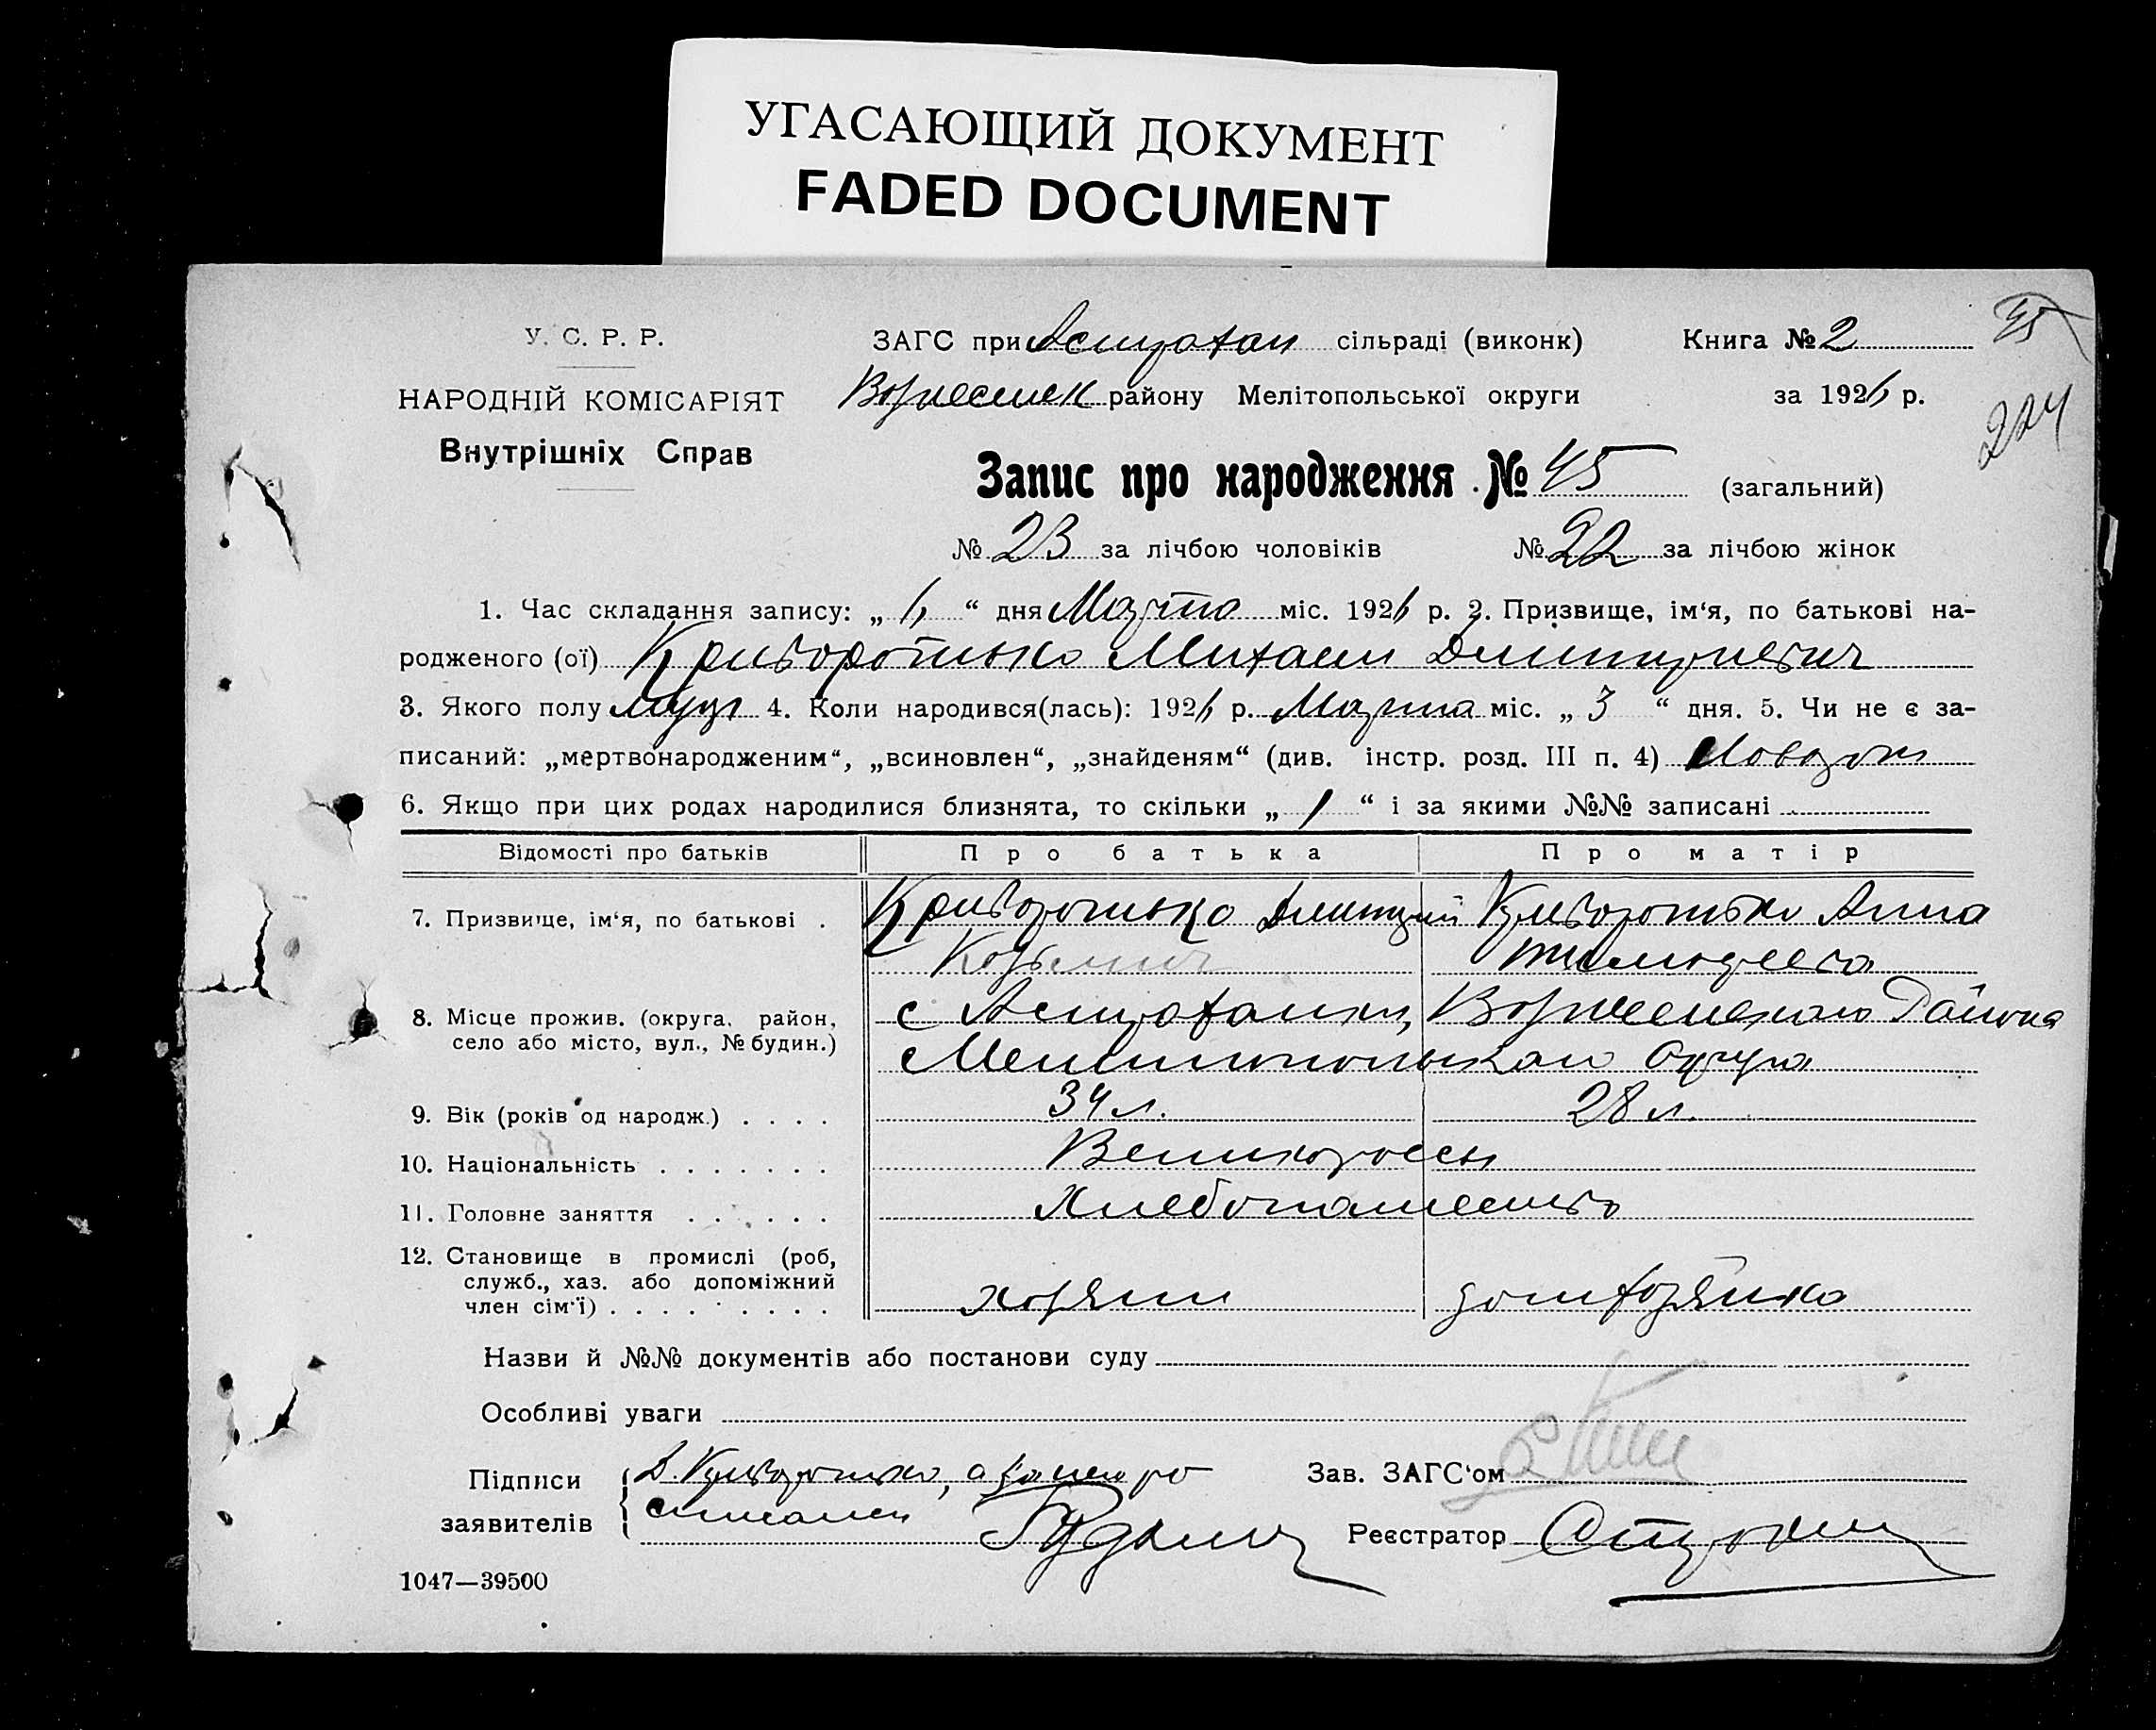 УГАСАЮЩИЙ ДОКУМЕНТ
FADED DOCUMENT
У. С. Р. Р.
НАРОДНІЙ КОМІСАРІЯТ
Внутрішніх Справ
ЗАГС при Астрахан сільраді (виконк) Книга № 2
45
Вознесенск району Мелітопольської округи за 1926 р.
224
Запис про народження № 45 (загальний)
№ 23 за лічбою чоловіків № 22 за лічбою жінок
1. Час складання запису: „ 6 “ дня Марта міс. 1926 р. 2. Призвище, ім‘я, по батькові на-
родженого (ої) Криворотько Михаил Дмитриевич
3. Якого полу Муж 4. Коли народився(лась): 1926 р. Марта міс. „ 3 “ дня. 5. Чи не є за-
писаний: „мертвонародженим“, „всиновлен“, „знайденям“ (див. інстр. розд. III п. 4)
6. Якщо при цих родах народилися близнята, то скільки „ 1 “ і за якими №№ записані
Відомості про батьків Про батька Про матір
7. Призвище, ім‘я, по батькові . Криворотько Дмитрий Криворотько Анна
Козьмич Тимофеевна
8. Місце прожив. (округа, район,
село або місто, вул., № будин.)
с Астраханки, Вознесенского Района
Мелитопольского Округа
9. Вік (років од народж.) . . . . 34 л. 28 л.
10. Національність . . . . . . . Великороссы
11. Головне заняття . . . . . . Хлебопашество
12. Становище в промислі (роб,
служб., хаз. або допоміжний
член сім‘ї) . . . . . . . . . хозяин домхозяйка
Назви й №№ документів або постанови суду
Особливі уваги
Підписи
заявителів
Д. Криворотько, а за него
Зав. ЗАГС‘ом
Реєстратор
1047—39500